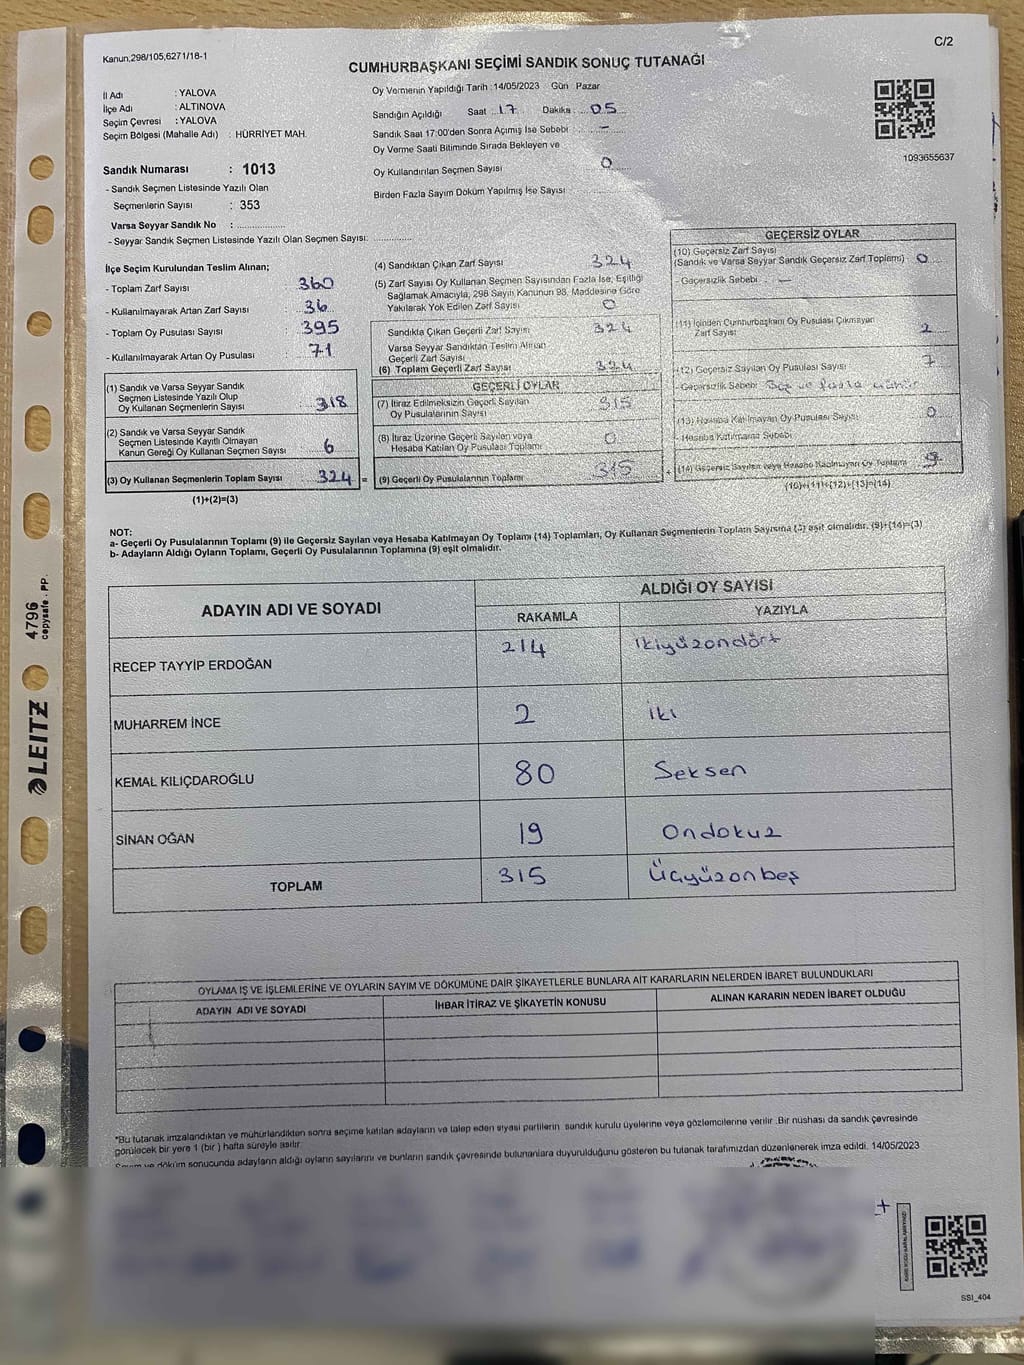 Kanun,298/105,6271/18-1
C/2
CUMHURBAŞKANI SEÇİMİ SANDIK SONUÇ TUTANAĞI
İl Adı : YALOVA
İlçe Adı : ALTINOVA
Seçim Çevresi : YALOVA
Seçim Bölgesi (Mahalle Adı) : HÜRRİYET MAH.
Oy Vermenin Yapıldığı Tarih :14/05/2023 Gün Pazar
Sandığın Açıldığı Saat ..17.. Dakika....05...
Sandık Saat 17:00'den Sonra Açımış İse Sebebi : –
Oy Verme Saati Bitiminde Sırada Bekleyen ve
Oy Kullandırılan Seçmen Sayısı 0
Birden Fazla Sayım Döküm Yapılmış İse Sayısı :
1093655637
Sandık Numarası : 1013
- Sandık Seçmen Listesinde Yazılı Olan
Seçmenlerin Sayısı : 353
Varsa Seyyar Sandık No : ..................
- Seyyar Sandık Seçmen Listesinde Yazılı Olan Seçmen Sayısı: ..............
İlçe Seçim Kurulundan Teslim Alınan;
- Toplam Zarf Sayısı : 360
- Kullanılmayarak Artan Zarf Sayısı : 36
- Toplam Oy Pusulası Sayısı : 395
- Kullanılmayarak Artan Oy Pusulası : 71
(1) Sandık ve Varsa Seyyar Sandık
Seçmen Listesinde Yazılı Olup
Oy Kullanan Seçmenlerin Sayısı : 318
(2) Sandık ve Varsa Seyyar Sandık
Seçmen Listesinde Kayıtlı Olmayan
Kanun Gereği Oy Kullanan Seçmen Sayısı : 6
(3) Oy Kullanan Seçmenlerin Toplam Sayısı : 324 =
(1)+(2)=(3)
(4) Sandıktan Çıkan Zarf Sayısı 324
(5) Zarf Sayısı Oy Kullanan Seçmen Sayısından Fazla İse, Eşitliği
Sağlamak Amacıyla, 298 Sayılı Kanunun 98. Maddesine Göre
Yakılarak Yok Edilen Zarf Sayısı : 0
Sandıkta Çıkan Geçerli Zarf Sayısı : 324
Varsa Seyyar Sandıktan Teslim Alınan
Geçerli Zarf Sayısı
(6) Toplam Geçerli Zarf Sayısı : 324
GEÇERLİ OYLAR
(7) İtiraz Edilmeksizin Geçerli Sayılan
Oy Pusulalarının Sayısı : 315
(8) İtiraz Üzerine Geçerli Sayılan veya
Hesaba Katılan Oy Pusulası Toplamı : 0
(9) Geçerli Oy Pusulalarının Toplamı : 315 +
GEÇERSİZ OYLAR
(10) Geçersiz Zarf Sayısı
(Sandık ve Varsa Seyyar Sandık Geçersiz Zarf Toplamı) : 0
- Geçersizlik Sebebi : –
(11) İçinden Cumhurbaşkanı Oy Pusulası Çıkmayan
Zarf Sayısı : 2
(12) Geçersiz Sayılan Oy Pusulası Sayısı : 7
- Geçersizlik Sebebi : ve fazla
(13) Hesaba Katılmayan Oy Pusulası Sayısı : 0
- Hesaba Katılmama Sebebi :
(14) Geçersiz Sayılan veya Hesaba Katılmayan Oy Toplamı : 9
(10)+(11)+(12)+(13)=(14)
NOT:
a- Geçerli Oy Pusulalarının Toplamı (9) ile Geçersiz Sayılan veya Hesaba Katılmayan Oy Toplamı (14) Toplamları, Oy Kullanan Seçmenlerin Toplam Sayısına (3) eşit olmalıdır. (9)+(14)=(3)
b- Adayların Aldığı Oyların Toplamı, Geçerli Oy Pusulalarının Toplamına (9) eşit olmalıdır.
ADAYIN ADI VE SOYADI
ALDIĞI OY SAYISI
RAKAMLA YAZIYLA
RECEP TAYYİP ERDOĞAN 214 İkiyüzondört
MUHARREM İNCE 2 İki
KEMAL KILIÇDAROĞLU 80 Seksen
SİNAN OĞAN 19 Ondokuz
TOPLAM 315 Üçyüzonbeş
OYLAMA İŞ VE İŞLEMLERİNE VE OYLARIN SAYIM VE DÖKÜMÜNE DAİR ŞİKAYETLERLE BUNLARA AİT KARARLARIN NELERDEN İBARET BULUNDUKLARI
ADAYIN ADI VE SOYADI İHBAR İTİRAZ VE ŞİKAYETİN KONUSU ALINAN KARARIN NEDEN İBARET OLDUĞU
*Bu tutanak imzalandıktan ve mühürlendikten sonra seçime katılan adayların ve talep eden siyasi partilerin sandık kurulu üyelerine veya gözlemcilerine verilir .Bir nüshası da sandık çevresinde
görülecek bir yere 1 (bir ) hafta süreyle asılır.
Sayım ve döküm sonucunda adayların aldığı oyların sayılarını ve bunların sandık çevresinde bulunanlara duyurulduğunu gösteren bu tutanak tarafımızdan düzenlenerek imza edildi. 14/05/2023
SSI_404
LEITZ
4796
copysafe . PP.